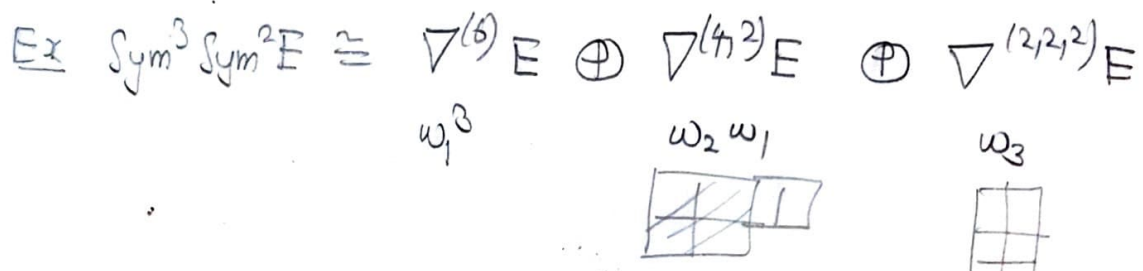 Ex Sym³ Sym²E ≅ ∇⁽⁶⁾E ⊕ ∇⁽⁴,²⁾E ⊕ ∇⁽²,²,²⁾E
w₁³ w₂ w₁ w₃